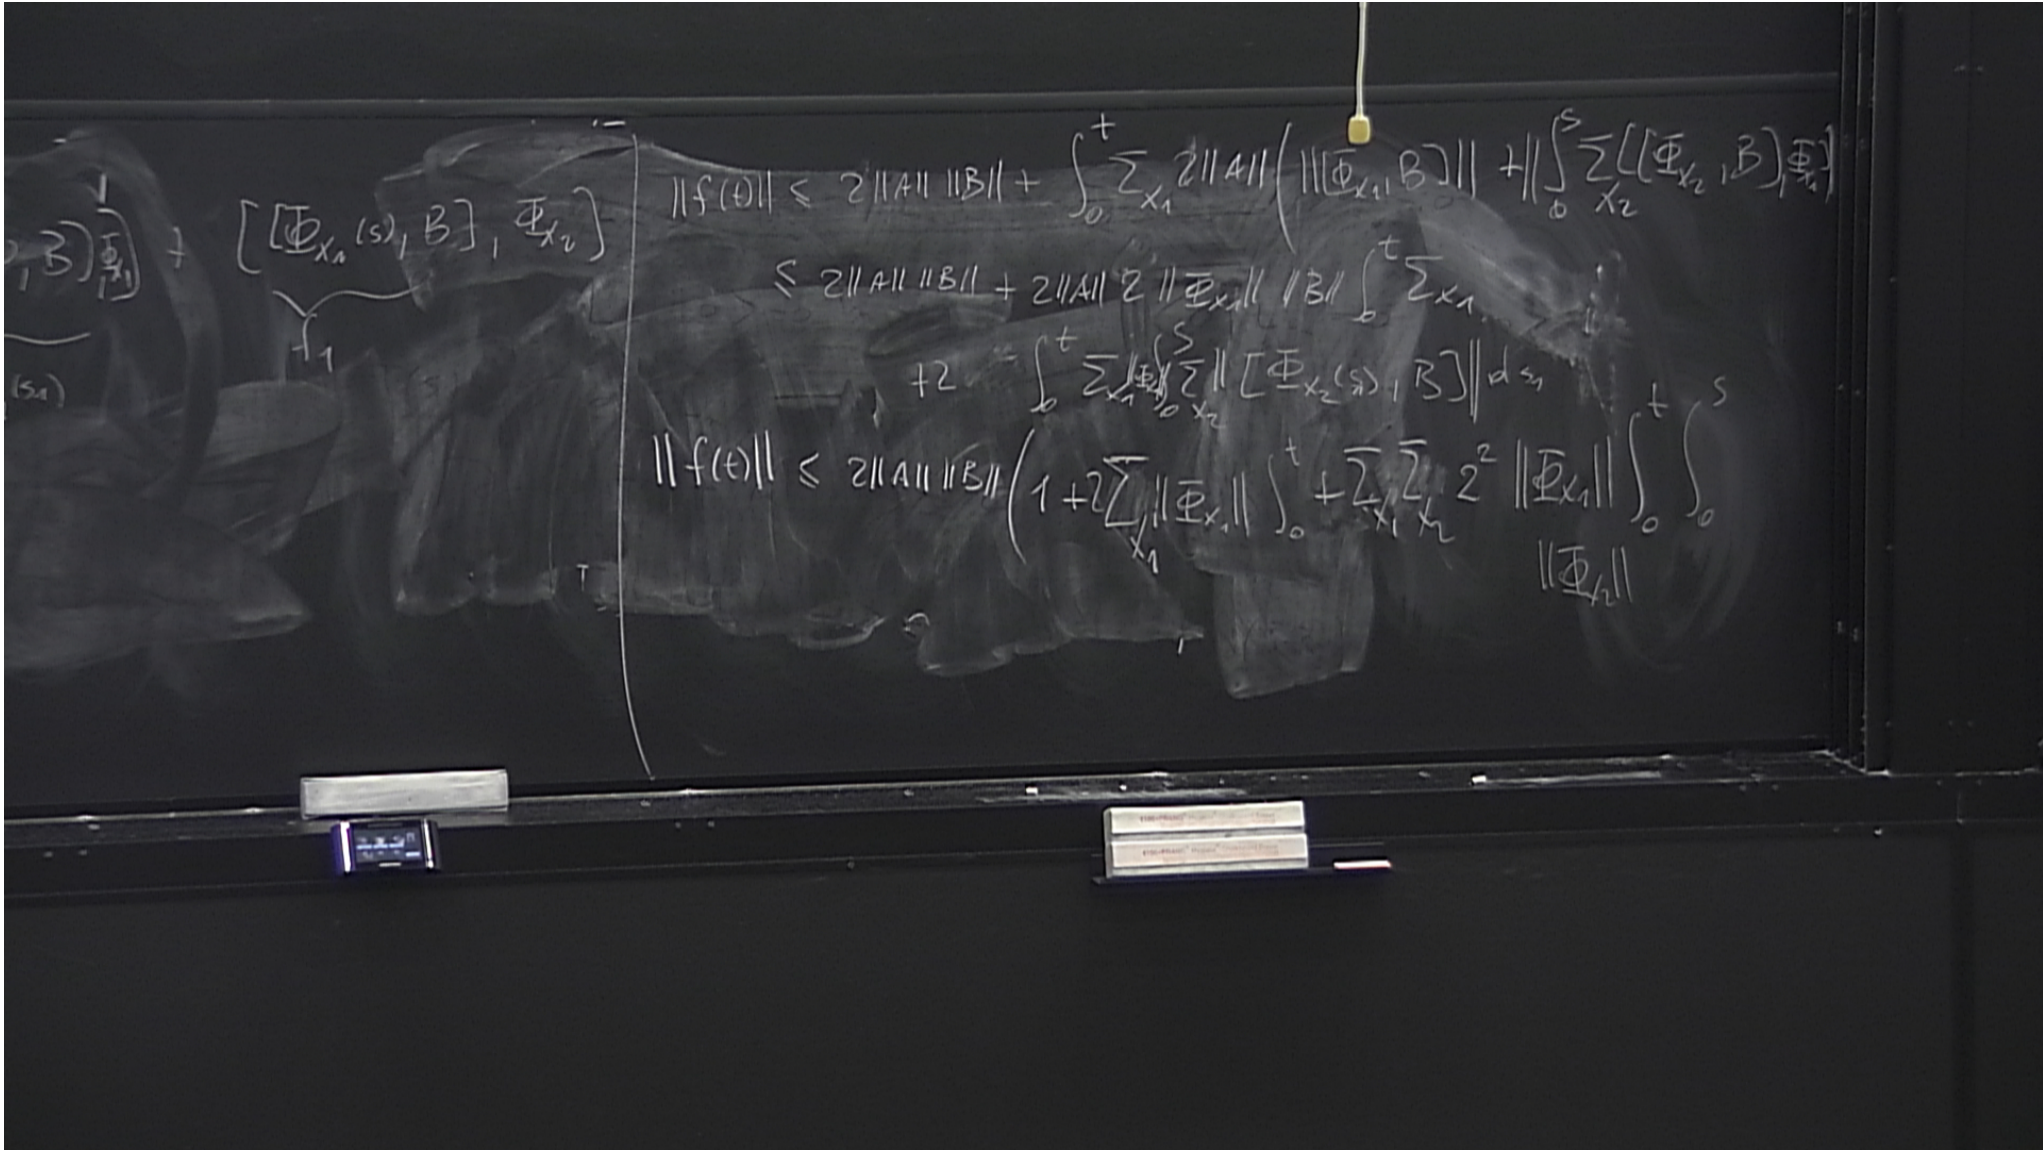 , B] Φ_{X_1}] + [[Φ_{X_1}(s), B], Φ_{X_2}]
f_1
(s_1)
||f(t)|| ≤ 2||A|| ||B|| + ∫_0^t Σ_{X_1} 2||A|| ( ||[Φ_{X_1}, B]|| + || ∫_0^s Σ_{X_2} [[Φ_{X_2}, B], Φ_{X_1}]
≤ 2||A|| ||B|| + 2||A|| 2 ||Φ_{X_1}|| ||B|| ∫_0^t Σ_{X_1}
+2 ∫_0^t Σ_{X_1} ∫_0^s Σ_{X_2} || [Φ_{X_2}(s_1), B] || ds_1
||f(t)|| ≤ 2||A|| ||B|| ( 1 + 2 Σ_{X_1} ||Φ_{X_1}|| ∫_0^t + Σ_{X_1} Σ_{X_2} 2^2 ||Φ_{X_1}|| ∫_0^t ∫_0^s
||Φ_{X_2}||